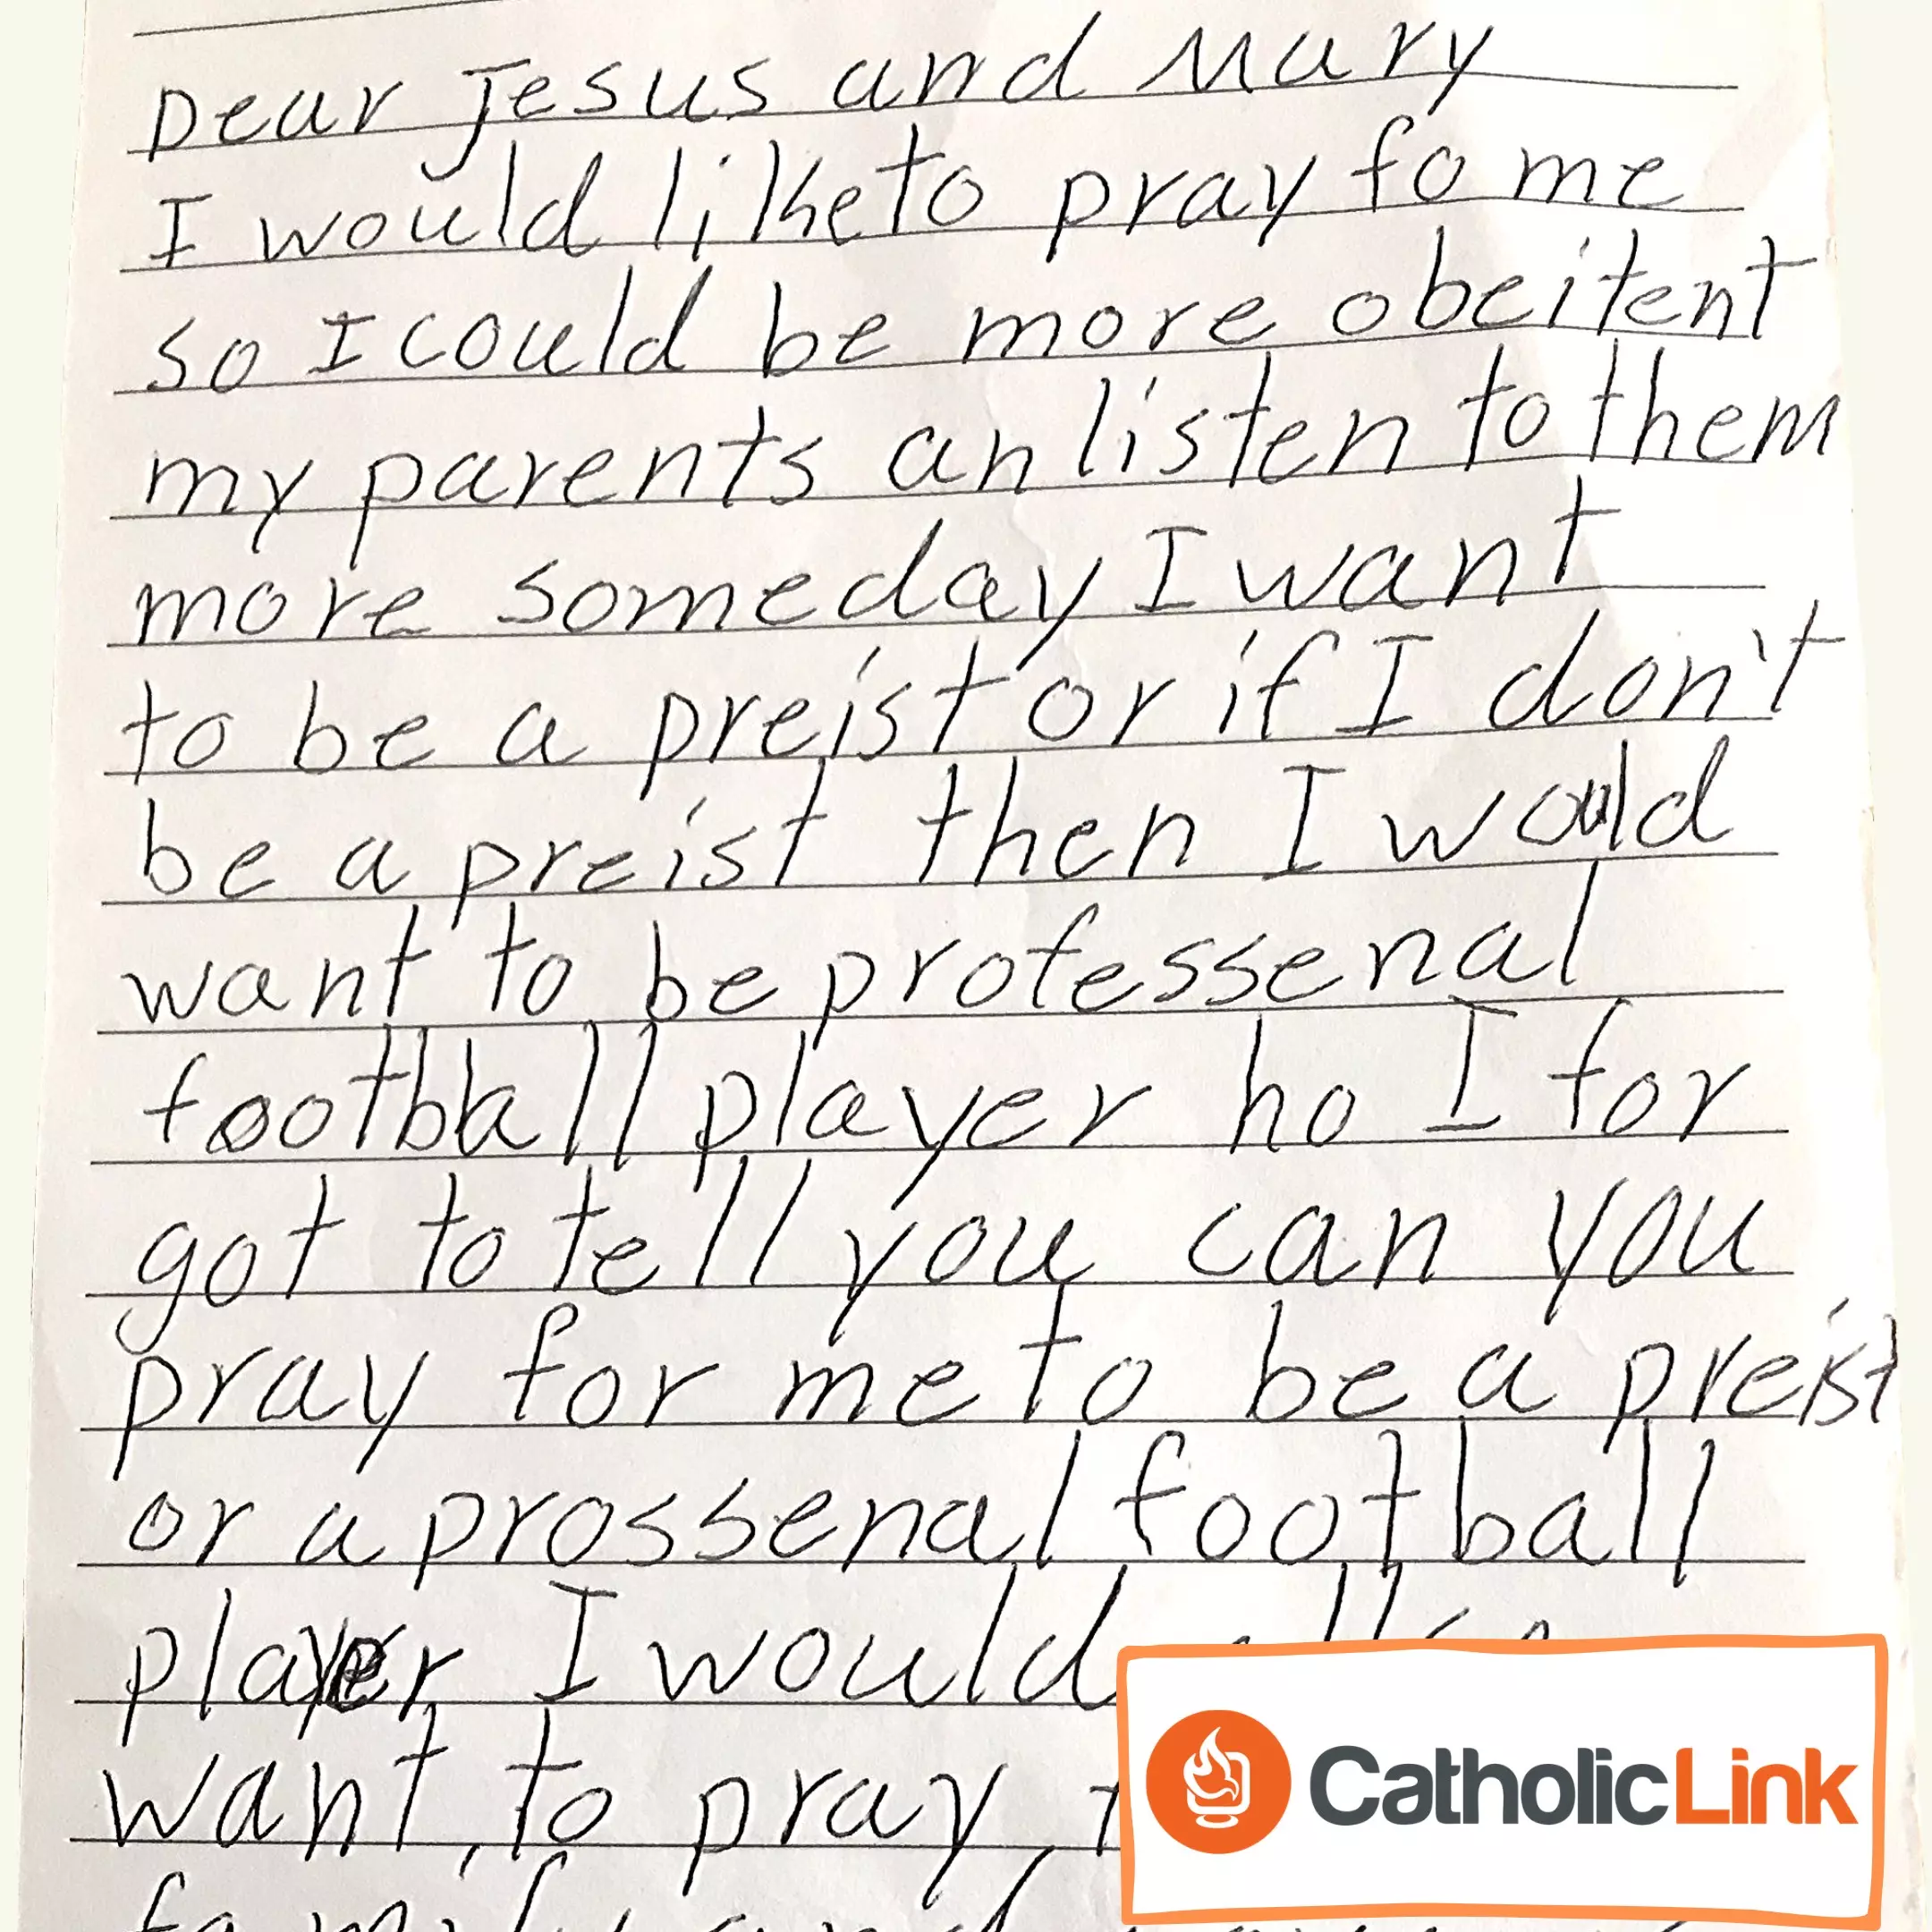 Dear Jesus and Mary
I would like to pray fo me
so I could be more obeitent
my parents an listen to them
more someday I want
to be a preist or if I don't
be a preist then I would
want to be professenal
football player ho I for
got to tell you can you
pray for me to be a preist
or a prossenal football
player I would
want to pray
family and
CatholicLink